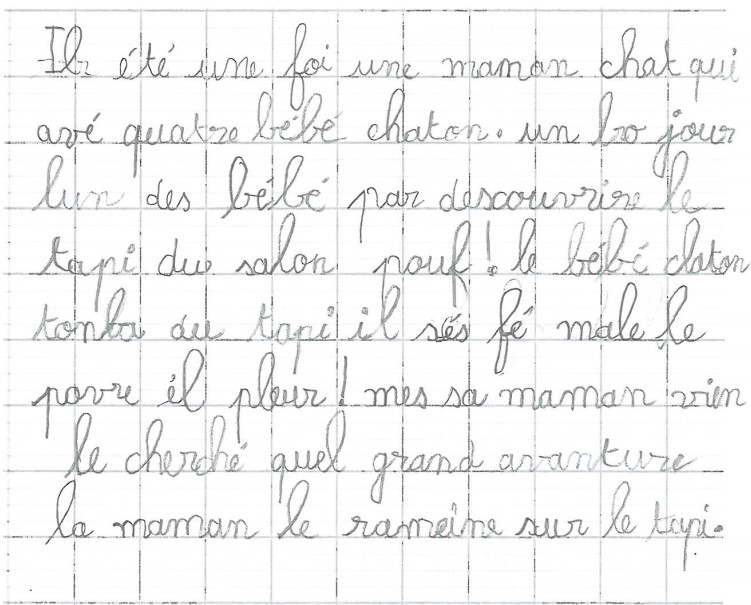 Il été une foi une maman chat qui
avé quatre bébé chaton. un bo jour
lun des bébé par descouvrire le
tapi du salon pouf! le bébé claton
tonba du tapi il sés fé male le
povre él pleur! mes sa maman vien
le cherché quel grand avanture
la maman le rameine sur le tapi.